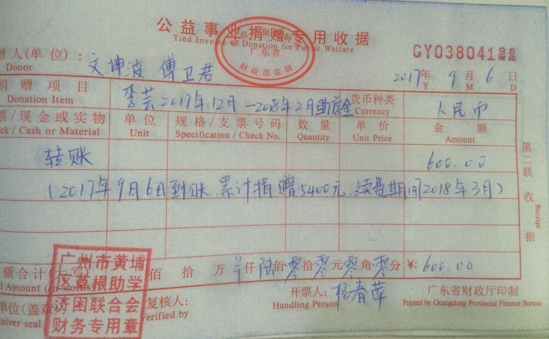 公益事业捐赠专用收据
Tied Invoice of Donation for Public Welfare
财政部监制
GY0380418
赠人(单位): 文坤波 傅卫君
2017年 9月 6日
Y M D
捐赠项目
Donation Item
李芸2017年12月—2018年2月助学金
货币种类
Currency
人民币
票/现金或实物
Check / Cash or Material
单位
Unit
规格/支票号码
Specification / Check No.
数量
Quantity
单价
Unit Price
金额
Amount
转账
600.00
(2017年9月6日到账,累计捐赠5400元,续费期间2018年3月)
金额合计(大写)
佰 拾 万 仟 陆佰 零拾 零元 零角 零分 ¥: 600.00
单位(盖章)
Receiver seal
复核人:
Verified by
开票人:
Handling Person
杨春萍
广东省财政厅印制
Printed by Guangdong Provincial Finance Bureau
第二联 收据
Receipt
广州市黄埔
区慈根助学
济困联合会
财务专用章